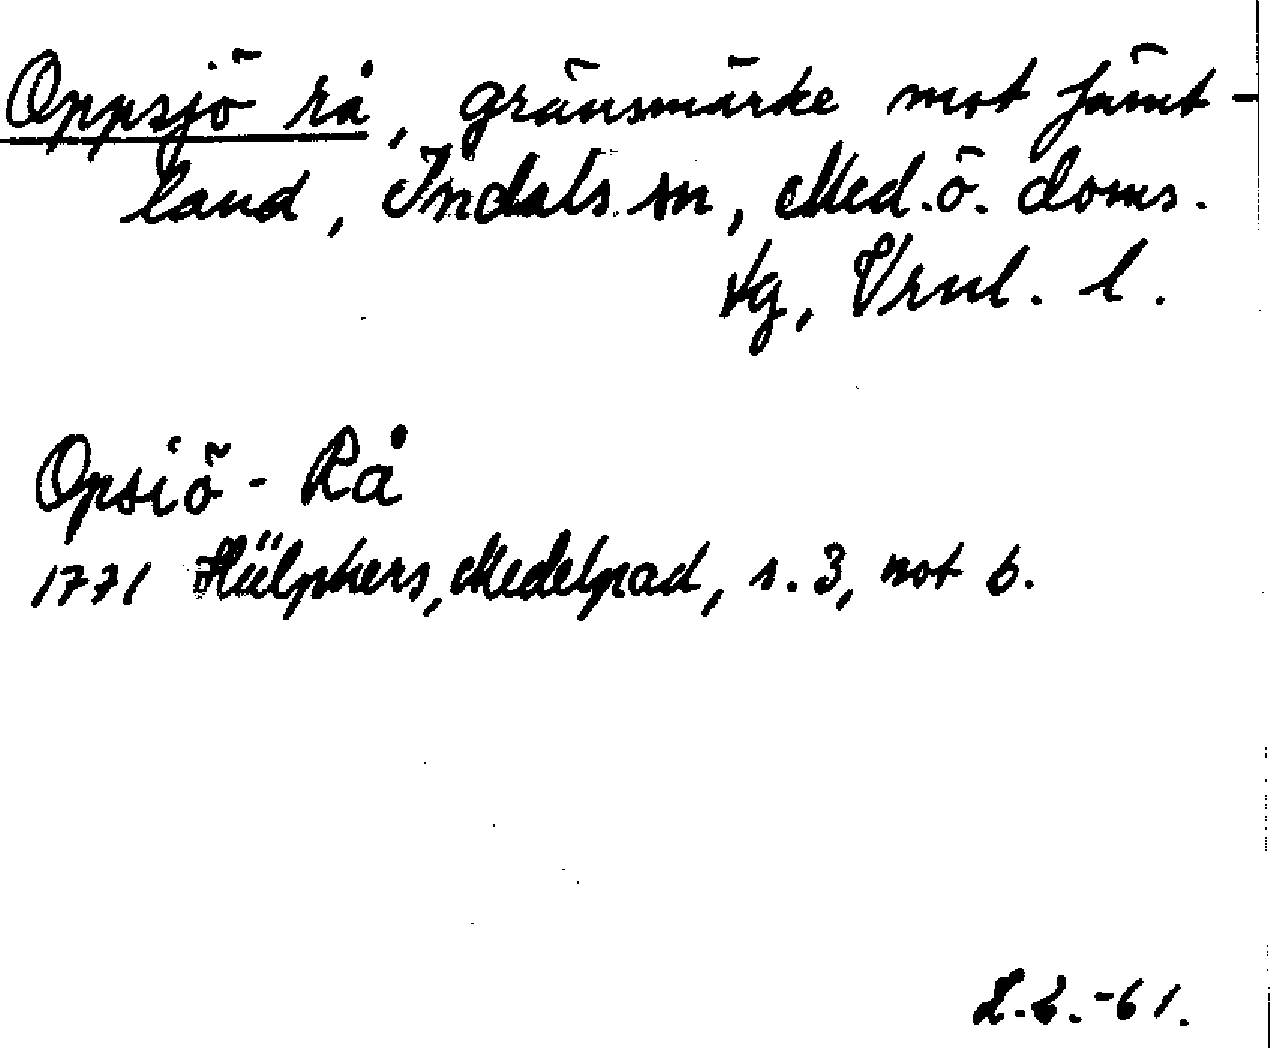 Oppsjö rå, gränsmärke mot Jämt-
land, Indals sn, Med. ö. doms.
sg, Vrnl. l.
Opsiö - Rå
1771 Hülphers, Medelpad, s. 3, not b.
L.L.-61.